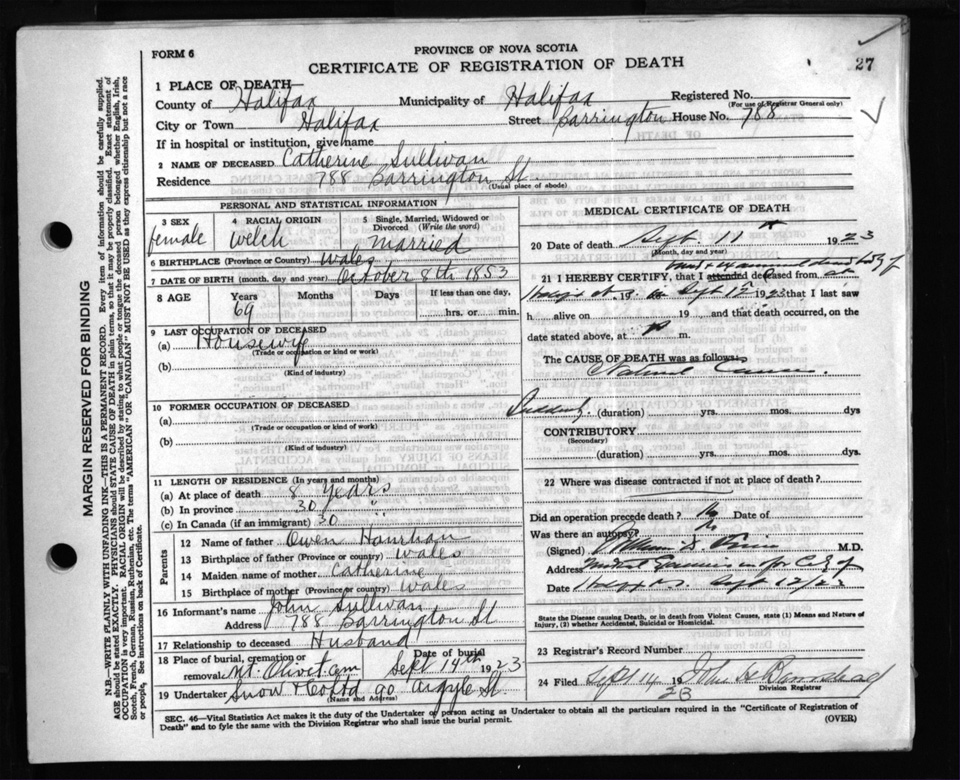 27
FORM 6
PROVINCE OF NOVA SCOTIA
CERTIFICATE OF REGISTRATION OF DEATH
MARGIN RESERVED FOR BINDING
N.B.—WRITE PLAINLY WITH UNFADING INK—THIS IS A PERMANENT RECORD. Every item of information should be carefully supplied.
AGE should be stated EXACTLY. PHYSICIANS should STATE CAUSE OF DEATH in plain terms, so that it may be properly classified. Exact statement of
OCCUPATION is very important. RACIAL ORIGIN will be described by stating to what people or tongue the deceased person belonged whether English, Irish,
Scotch, French, German, Russian, Ruthenian, etc. The terms "AMERICAN" or "CANADIAN" MUST NOT BE USED as they express citizenship but not a race
or people. See instructions on back of Certificate.
1 PLACE OF DEATH
County of Halifax Municipality of Halifax Registered No.
(For use of Registrar General only)
City or Town Halifax Street Barrington House No. 788
If in hospital or institution, give name
2 NAME OF DECEASED Catherine Sullivan
Residence 788 Barrington St
(Usual place of abode)
PERSONAL AND STATISTICAL INFORMATION
3 SEX 4 RACIAL ORIGIN 5 Single, Married, Widowed or Divorced (Write the word)
female Welch married
6 BIRTHPLACE (Province or Country) Wales
7 DATE OF BIRTH (month, day and year) October 8th 1853
8 AGE Years Months Days If less than one day,
69 hrs. or min.
9 LAST OCCUPATION OF DECEASED
(a) Housewife
(Trade or occupation or kind of work)
(b)
(Kind of industry)
10 FORMER OCCUPATION OF DECEASED
(a)
(Trade or occupation or kind of work)
(b)
(Kind of industry)
11 LENGTH OF RESIDENCE (In years and months)
(a) At place of death 8 Years
(b) In province 30 "
(c) In Canada (if an immigrant) 30 "
Parents
12 Name of father Owen Hanrhan
13 Birthplace of father (Province or country) Wales
14 Maiden name of mother Catherine
15 Birthplace of mother (Province or country) Wales
16 Informant's name John Sullivan
Address 788 Barrington St
17 Relationship to deceased Husband
18 Place of burial, cremation or removal Mt. Olivet Cem Date of burial Sept 14th 1923
19 Undertaker Snow & Co Ltd 90 Argyle St
(Name and Address)
MEDICAL CERTIFICATE OF DEATH
20 Date of death Sept 11 1923
(Month, day and year)
21 I HEREBY CERTIFY, that I attended deceased from
19 Sept 12 1923 that I last saw
h alive on 19 and that death occurred, on
date stated above, at m.
The CAUSE OF DEATH was as follows:
Natural Causes.
Suddenly (duration) yrs. mos. dys
CONTRIBUTORY
(Secondary)
(duration) yrs. mos. dys.
22 Where was disease contracted if not at place of death?
Did an operation precede death? No Date of
Was there an autopsy? No
(Signed) M.D.
Address
Date Sept 12/23
State the Disease causing Death, or in death from Violent Causes, state (1) Means and Nature of
Injury, (2) whether Accidental, Suicidal or Homicidal.
23 Registrar's Record Number
24 Filed Sept 14 1923
Division Registrar
SEC. 46—Vital Statistics Act makes it the duty of the Undertaker or person acting as Undertaker to obtain all the particulars required in the "Certificate of Registration of
Death" and to fyle the same with the Division Registrar who shall issue the burial permit.
(OVER)